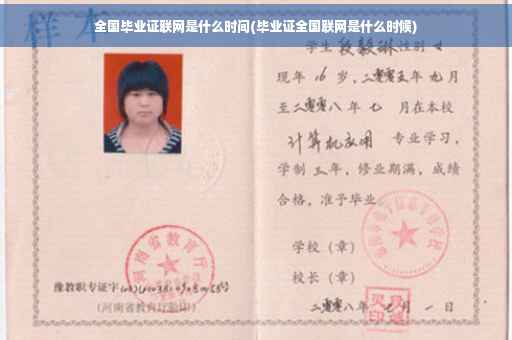 全国毕业证联网是什么时间(毕业证全国联网是什么时候)
样本
学生 段毅琳 性别 女
现年 16 岁,二零零五年 九月
至二零零八年 七 月在本校
计算机应用 专业学习,
学制 三 年,修业期满,成绩
合格,准予毕业
学校(章)
校长(章)
二零零八年 七 月 一 日
河南省教育厅
豫教职专证字
(河南省教育厅验印)